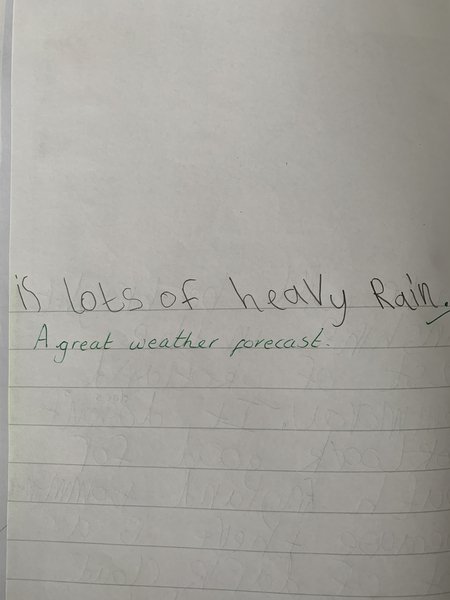 is lots of heavy Rain.
A great weather forecast.